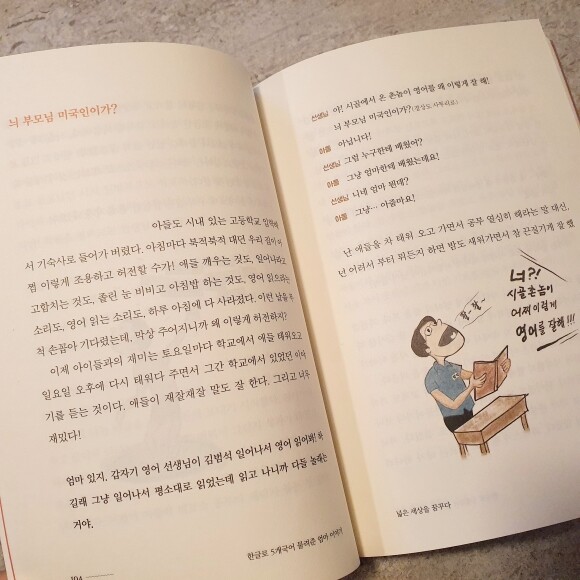 늬 부모님 미국인이가?
아들도 시내 있는 고등학교
서 기숙사로 들어가 버렸다. 아침마다 북적북적 대던 우리 집이 어
쩜 이렇게 조용하고 허전할 수가! 애들 깨우는 것도, 일어나라고
고함치는 것도, 졸린 눈 비비고 아침밥 하는 것도, 영어 읽으라는
소리도, 영어 읽는 소리도, 하루 아침에 다 사라졌다. 이런 날을 목
척 손꼽아 기다렸는데, 막상 주어지니까 왜 이렇게 허전하지?
이제 아이들과의 재미는 토요일마다 학교에서 애들 태워오고
일요일 오후에 다시 태워다 주면서 그간 학교에서 있었던 이야
기를 듣는 것이다. 애들이 재잘재잘 말도 잘 한다. 그리고 너무
재밌다!
엄마 있지, 갑자기 영어 선생님이 김범석 일어나서 영어 읽어봐! 하
길래 그냥 일어나서 평소대로 읽었는데 읽고 나니까 다들 놀래는
거야.
194
한글로 5개국어 물려준 엄마 이야기
선생님 야! 시골에서 온 촌놈이 영어를 왜 이렇게 잘 해!
늬 부모님 미국인이가?(경상도 사투리로)
아들 아닙니다!
선생님 그럼 누구한테 배웠어?
아들 그냥 엄마한테 배웠는데요!
선생님 니네 엄마 뭔데?
아들 그냥… 아줌마요!
난 애들을 차 태워 오고 가면서 공부 열심히 해라는 말 대신,
넌 어려서 부터 뭐든지 하면 밤도 새워가면서 참 끈질기게 잘 했
너?!
시골촌놈이
어찌 이렇게
영어를 잘해!!!
쏼~쏼~
넓은 세상을 꿈꾸다